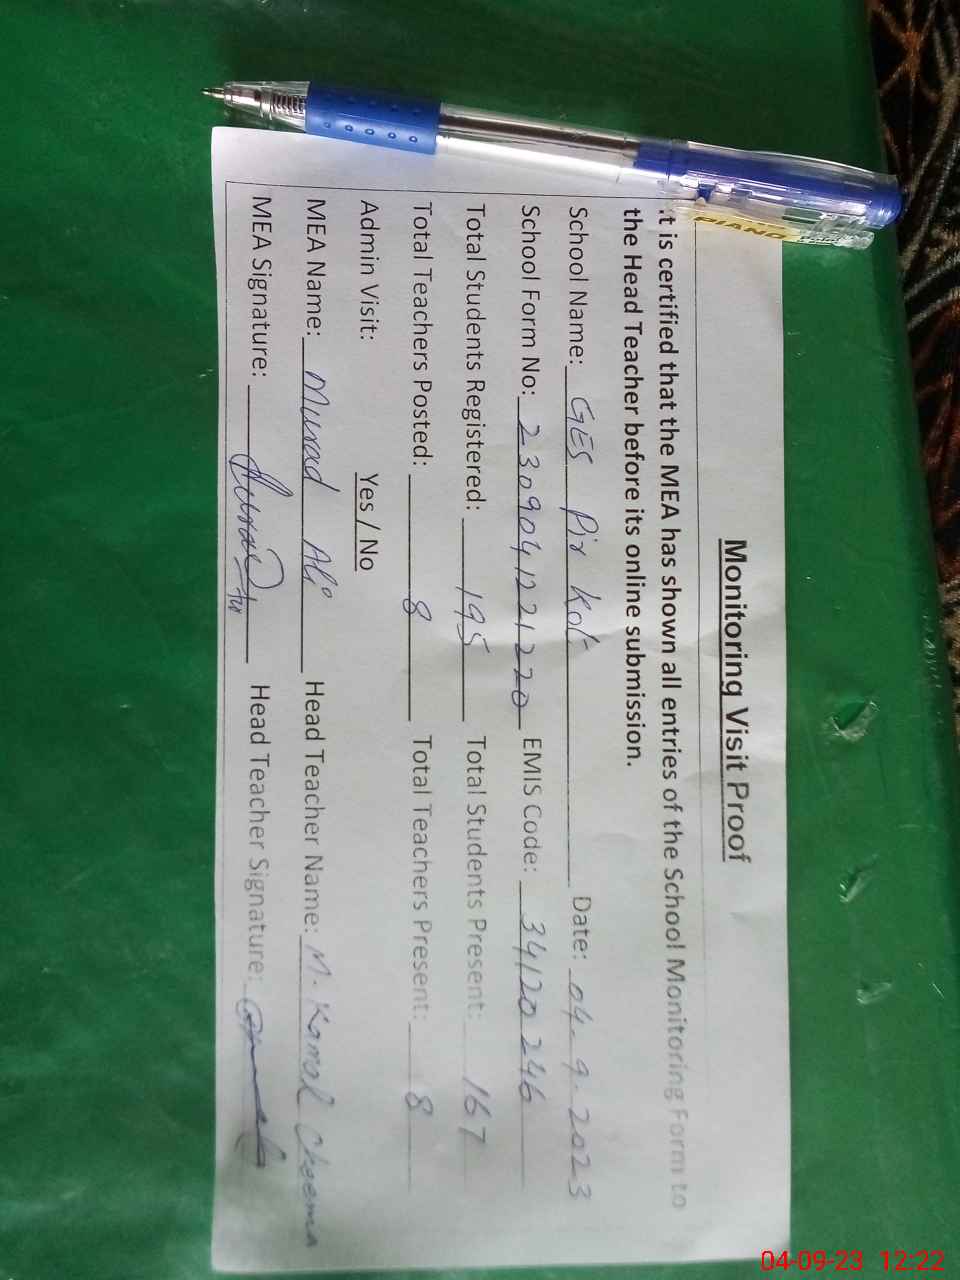 Monitoring Visit Proof
It is certified that the MEA has shown all entries of the School Monitoring Form to
the Head Teacher before its online submission.
School Name: GES Pir Kot Date: 04-9-2023
School Form No: 2309041221220 EMIS Code: 34120246
Total Students Registered: 195 Total Students Present: 167
Total Teachers Posted: 8 Total Teachers Present: 8
Admin Visit: Yes / No
MEA Name: Murad Ali Head Teacher Name: M. Kamal Cheema
MEA Signature: Head Teacher Signature:
PIANO
04-09-23 12:22